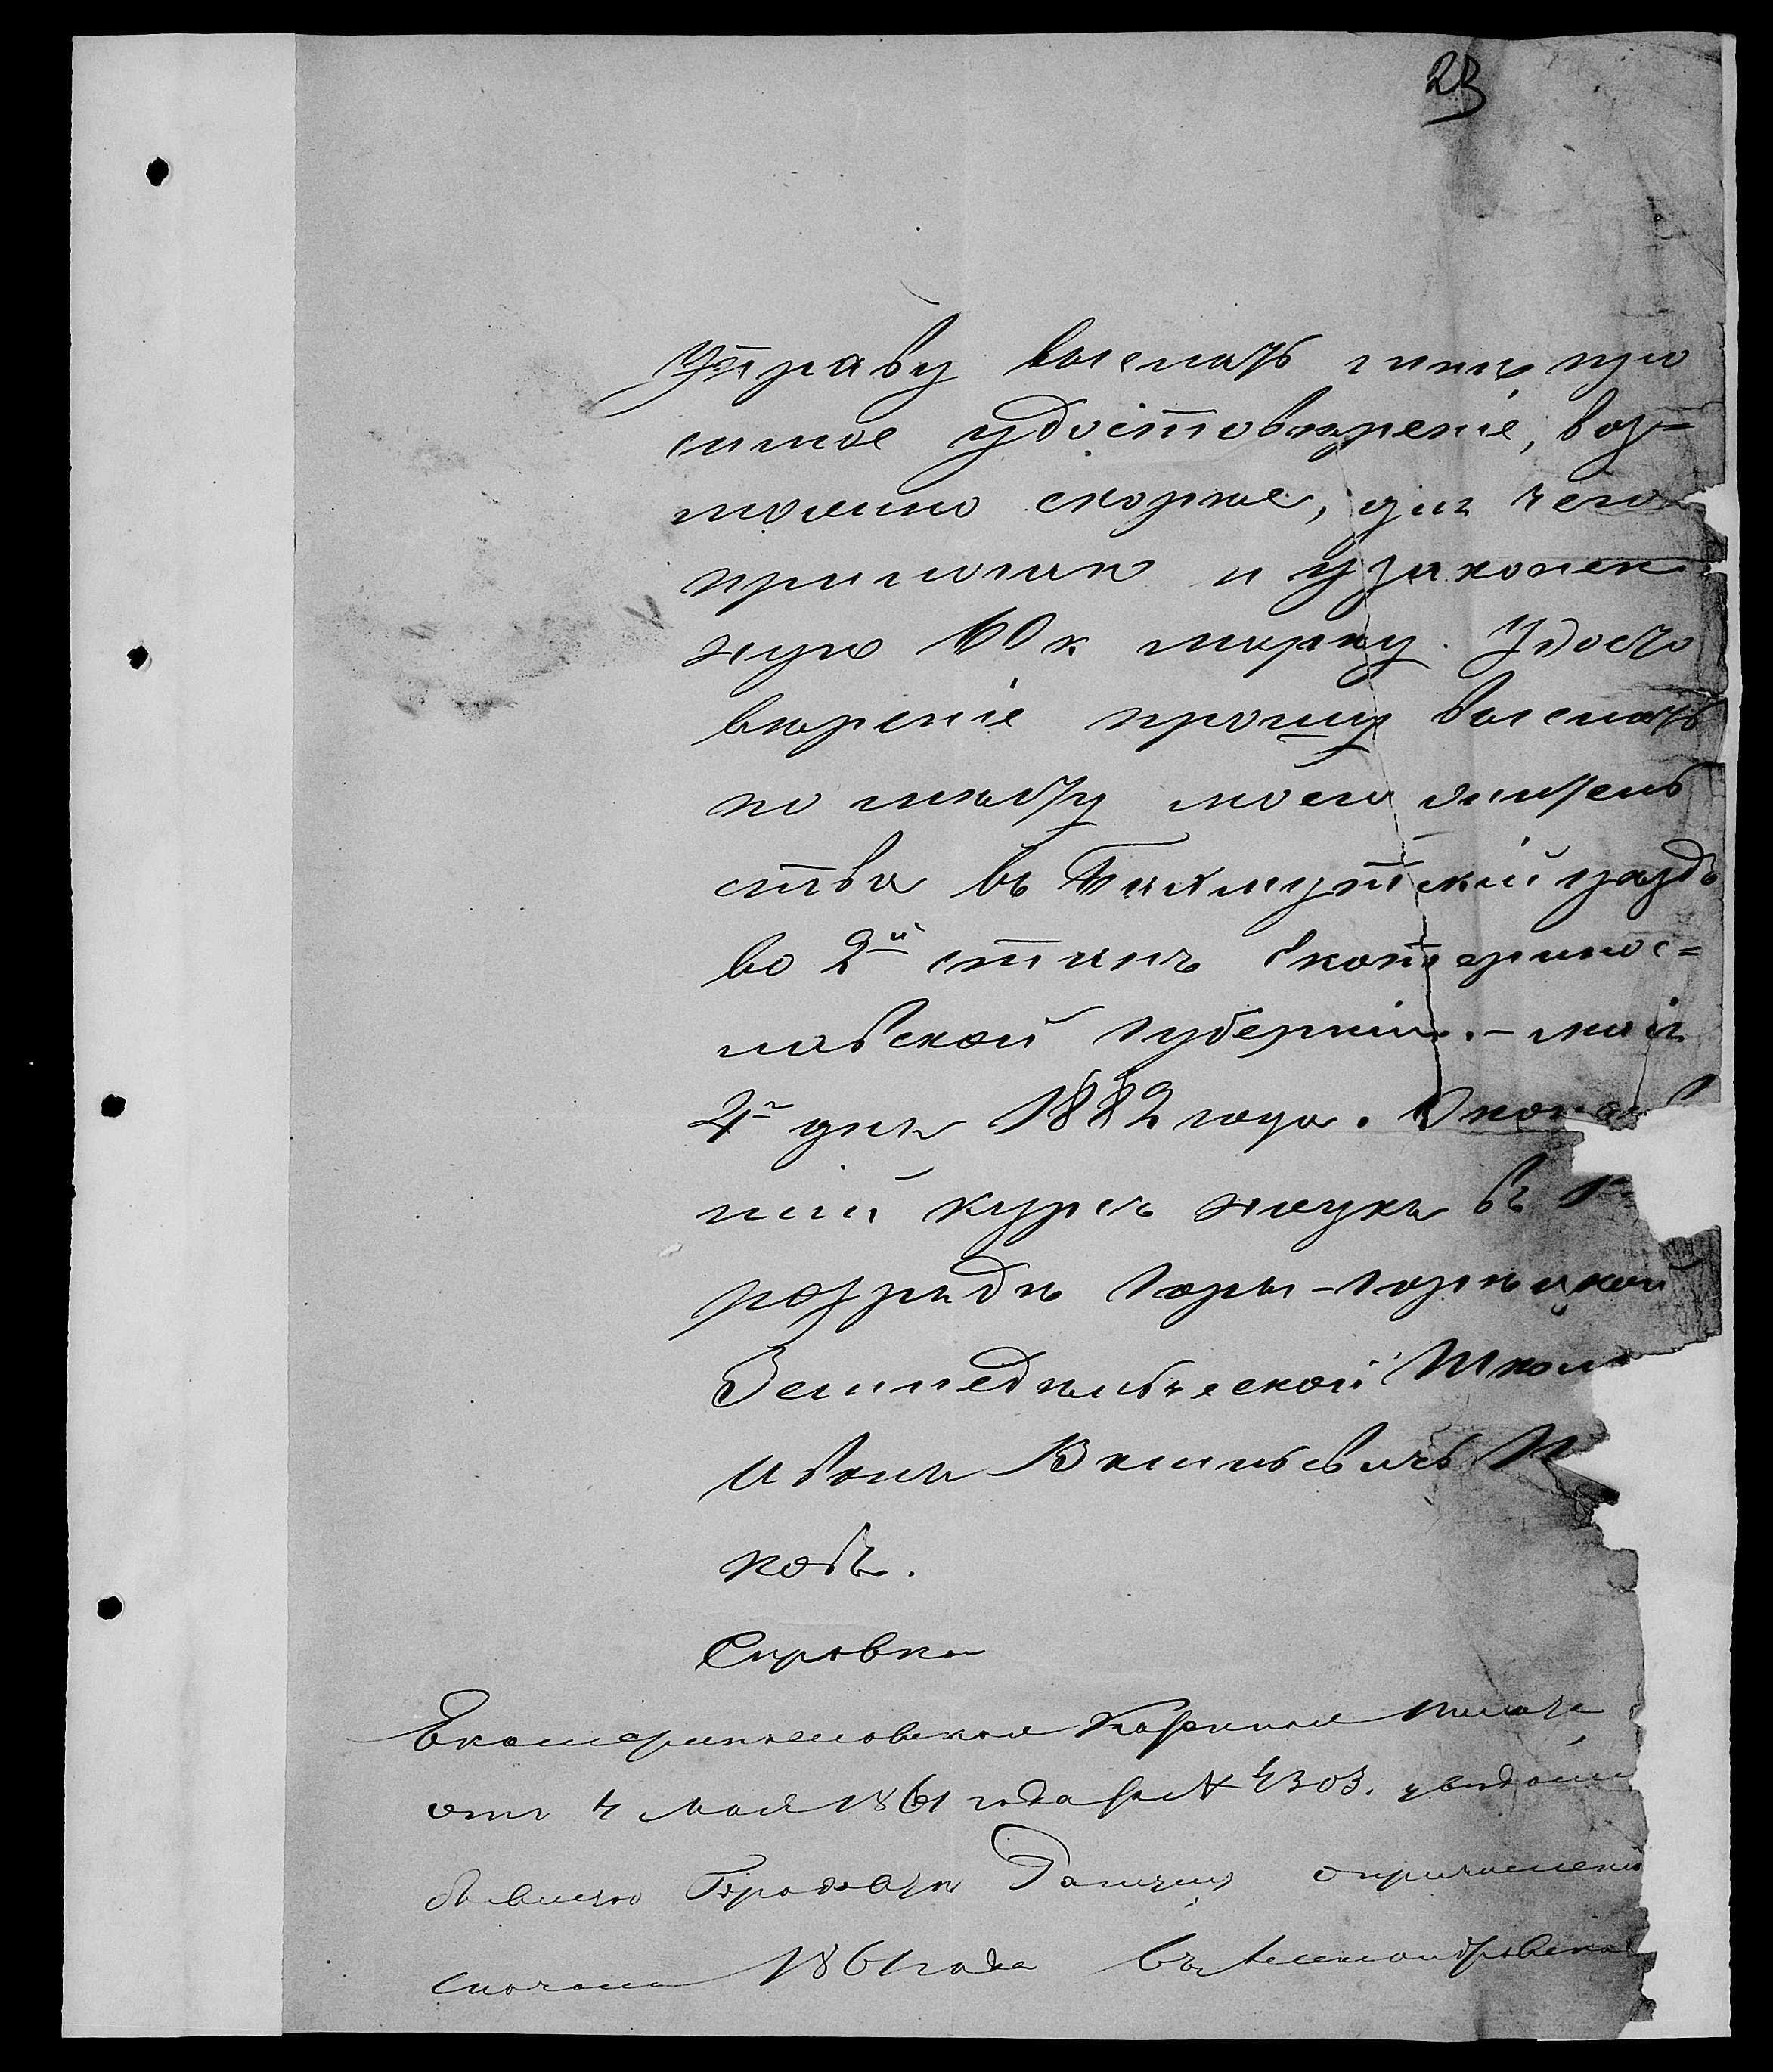 23
Управу выслать мнѣ про
симое удостовѣреніе, воз=
можно скорѣе, для чего
прилагаю и узаконен
ную 60 к марку. Удосто
вѣреніе прошу выслать
по мѣсту моего житель
ства въ Бахмутскій уѣздъ
во 2й станъ Екатеринос=
лавской губерніи. - мая
4го дня 1882 года. Окончив
шій курсъ наукъ въ 1
разрядѣ Горы-Горѣцкой
Земледѣльческой Школ
Иванъ Васильевичъ
ковъ.
Справка
Екатеринославская Казенная Палата
отъ 4 мая 1861 года за № 4303. увѣдоми
бывшую Городовую о причисленіи
сначала 1861 года въ Александровск